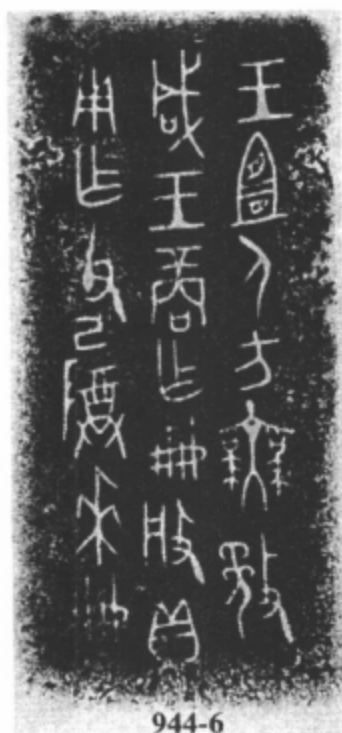 王宜人方無敄
咸王商乍冊般貝
用乍父己尊來冊
944-6